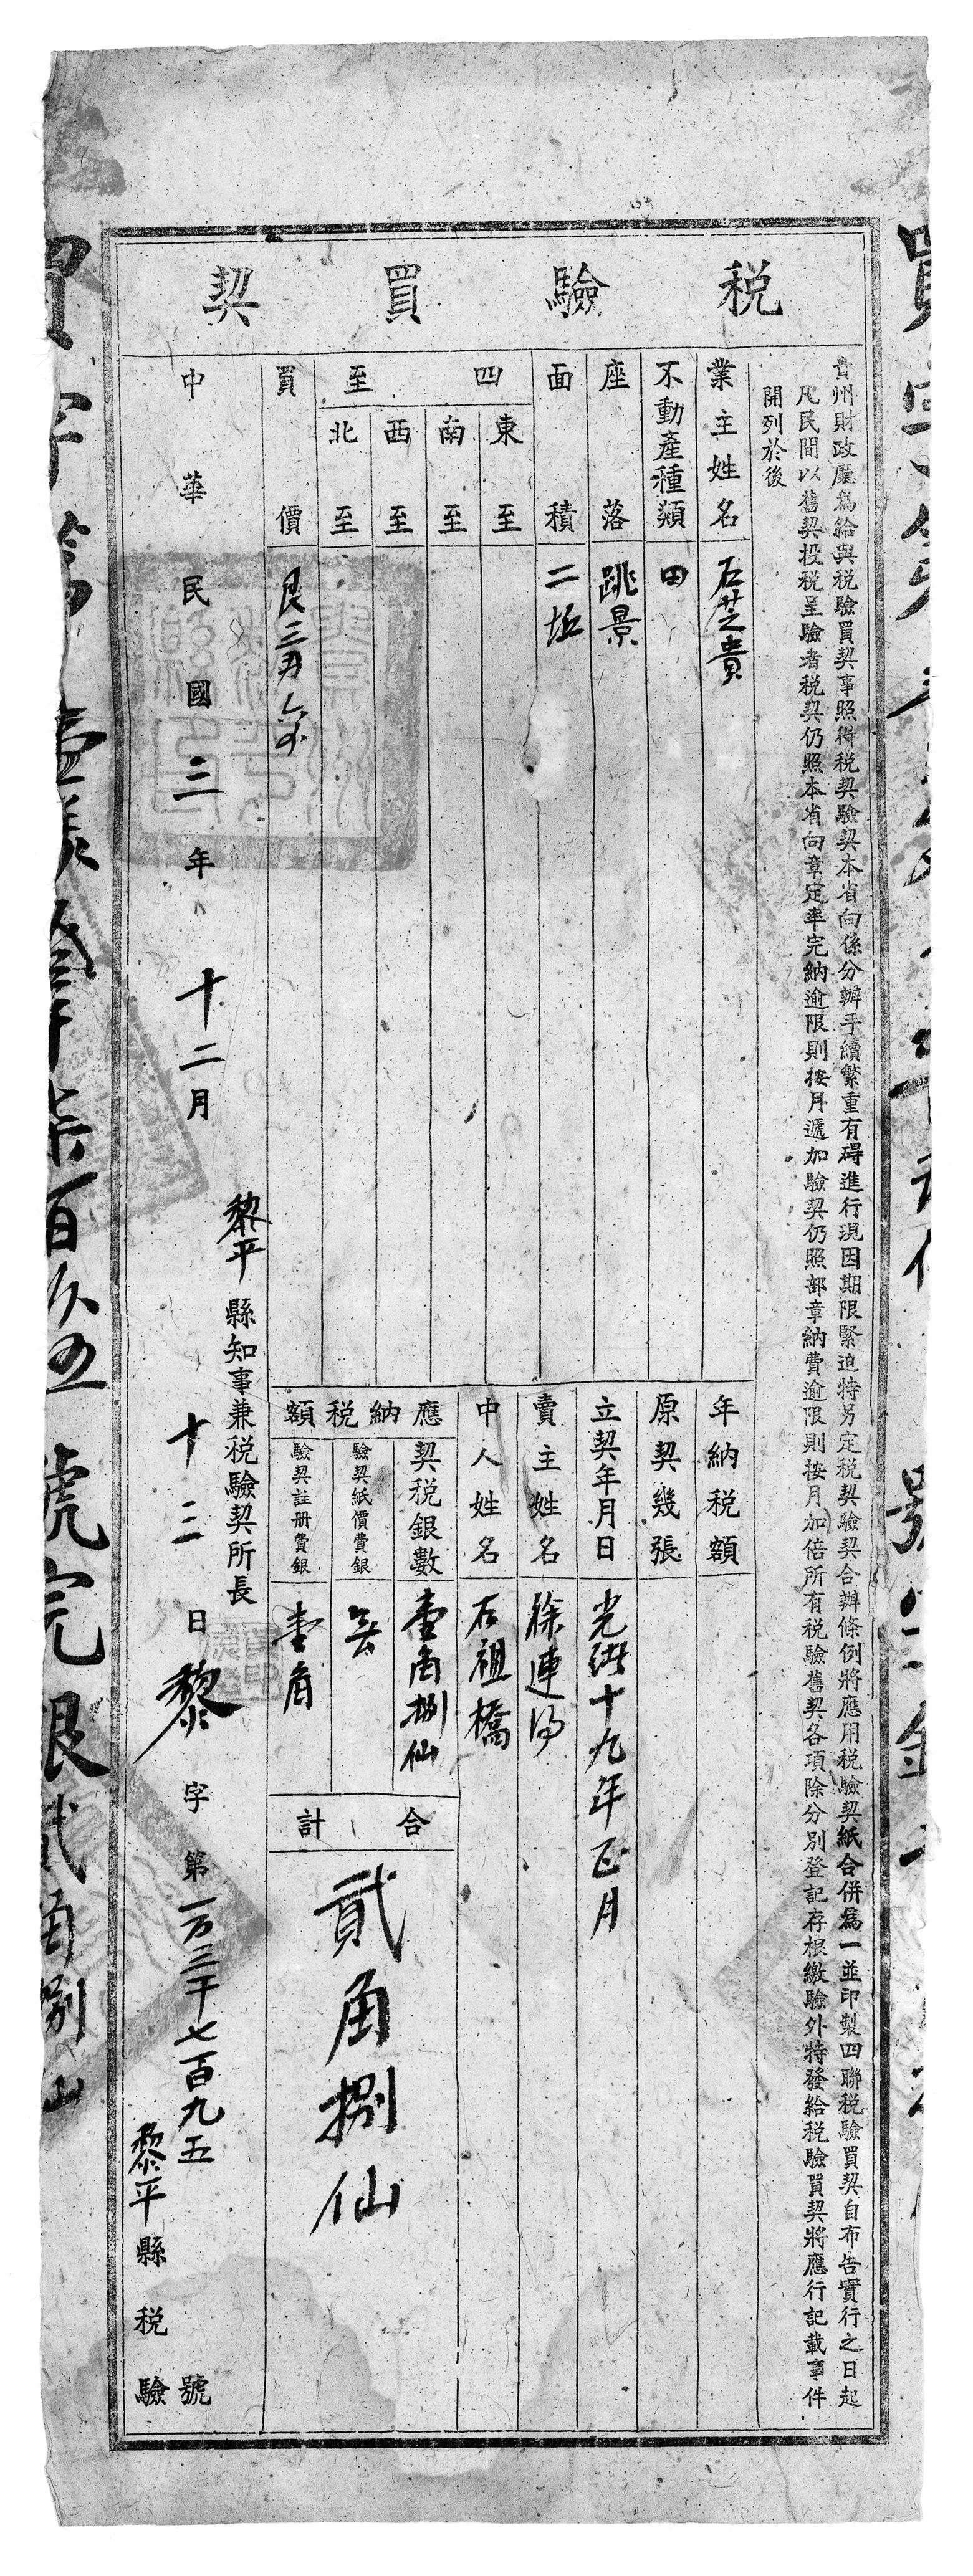 税驗買契
貴州財政廳為給與税驗買契事照得税契驗契本省向係分辦手續繁重有碍進行現因期限緊迫特另定税契驗契合辦條例將應用税驗契紙合併為一並印製四聯税驗買契自布告實行之日起
凡民間以舊契投税呈驗者税契仍照本省向章定率完納逾限則按月遞加驗契仍照部章納費逾限則按月加倍所有税驗舊契各項除分別登記存根繳驗外特發給税驗買契將應行記載事件
開列於後
業主姓名 石芝貴
不動產種類 田
座落 跳景
面積 二坵
四至
東至
南至
西至
北至
買價 艮三两
年納税額
原契幾張
立契年月日 光緒十九年正月
賣主姓名 徐連
中人姓名 石祖橋
應納税額
契税銀數 壹角捌仙
驗契紙價費銀 無
驗契註册費銀 壹角
合計
貳角捌仙
黎平縣知事兼税驗契所長
中華民國三年十二月十三日黎字第一万三千七百九五號
黎平縣税驗
買字第 壹萬叁千柒百玖五號完銀貳角捌仙